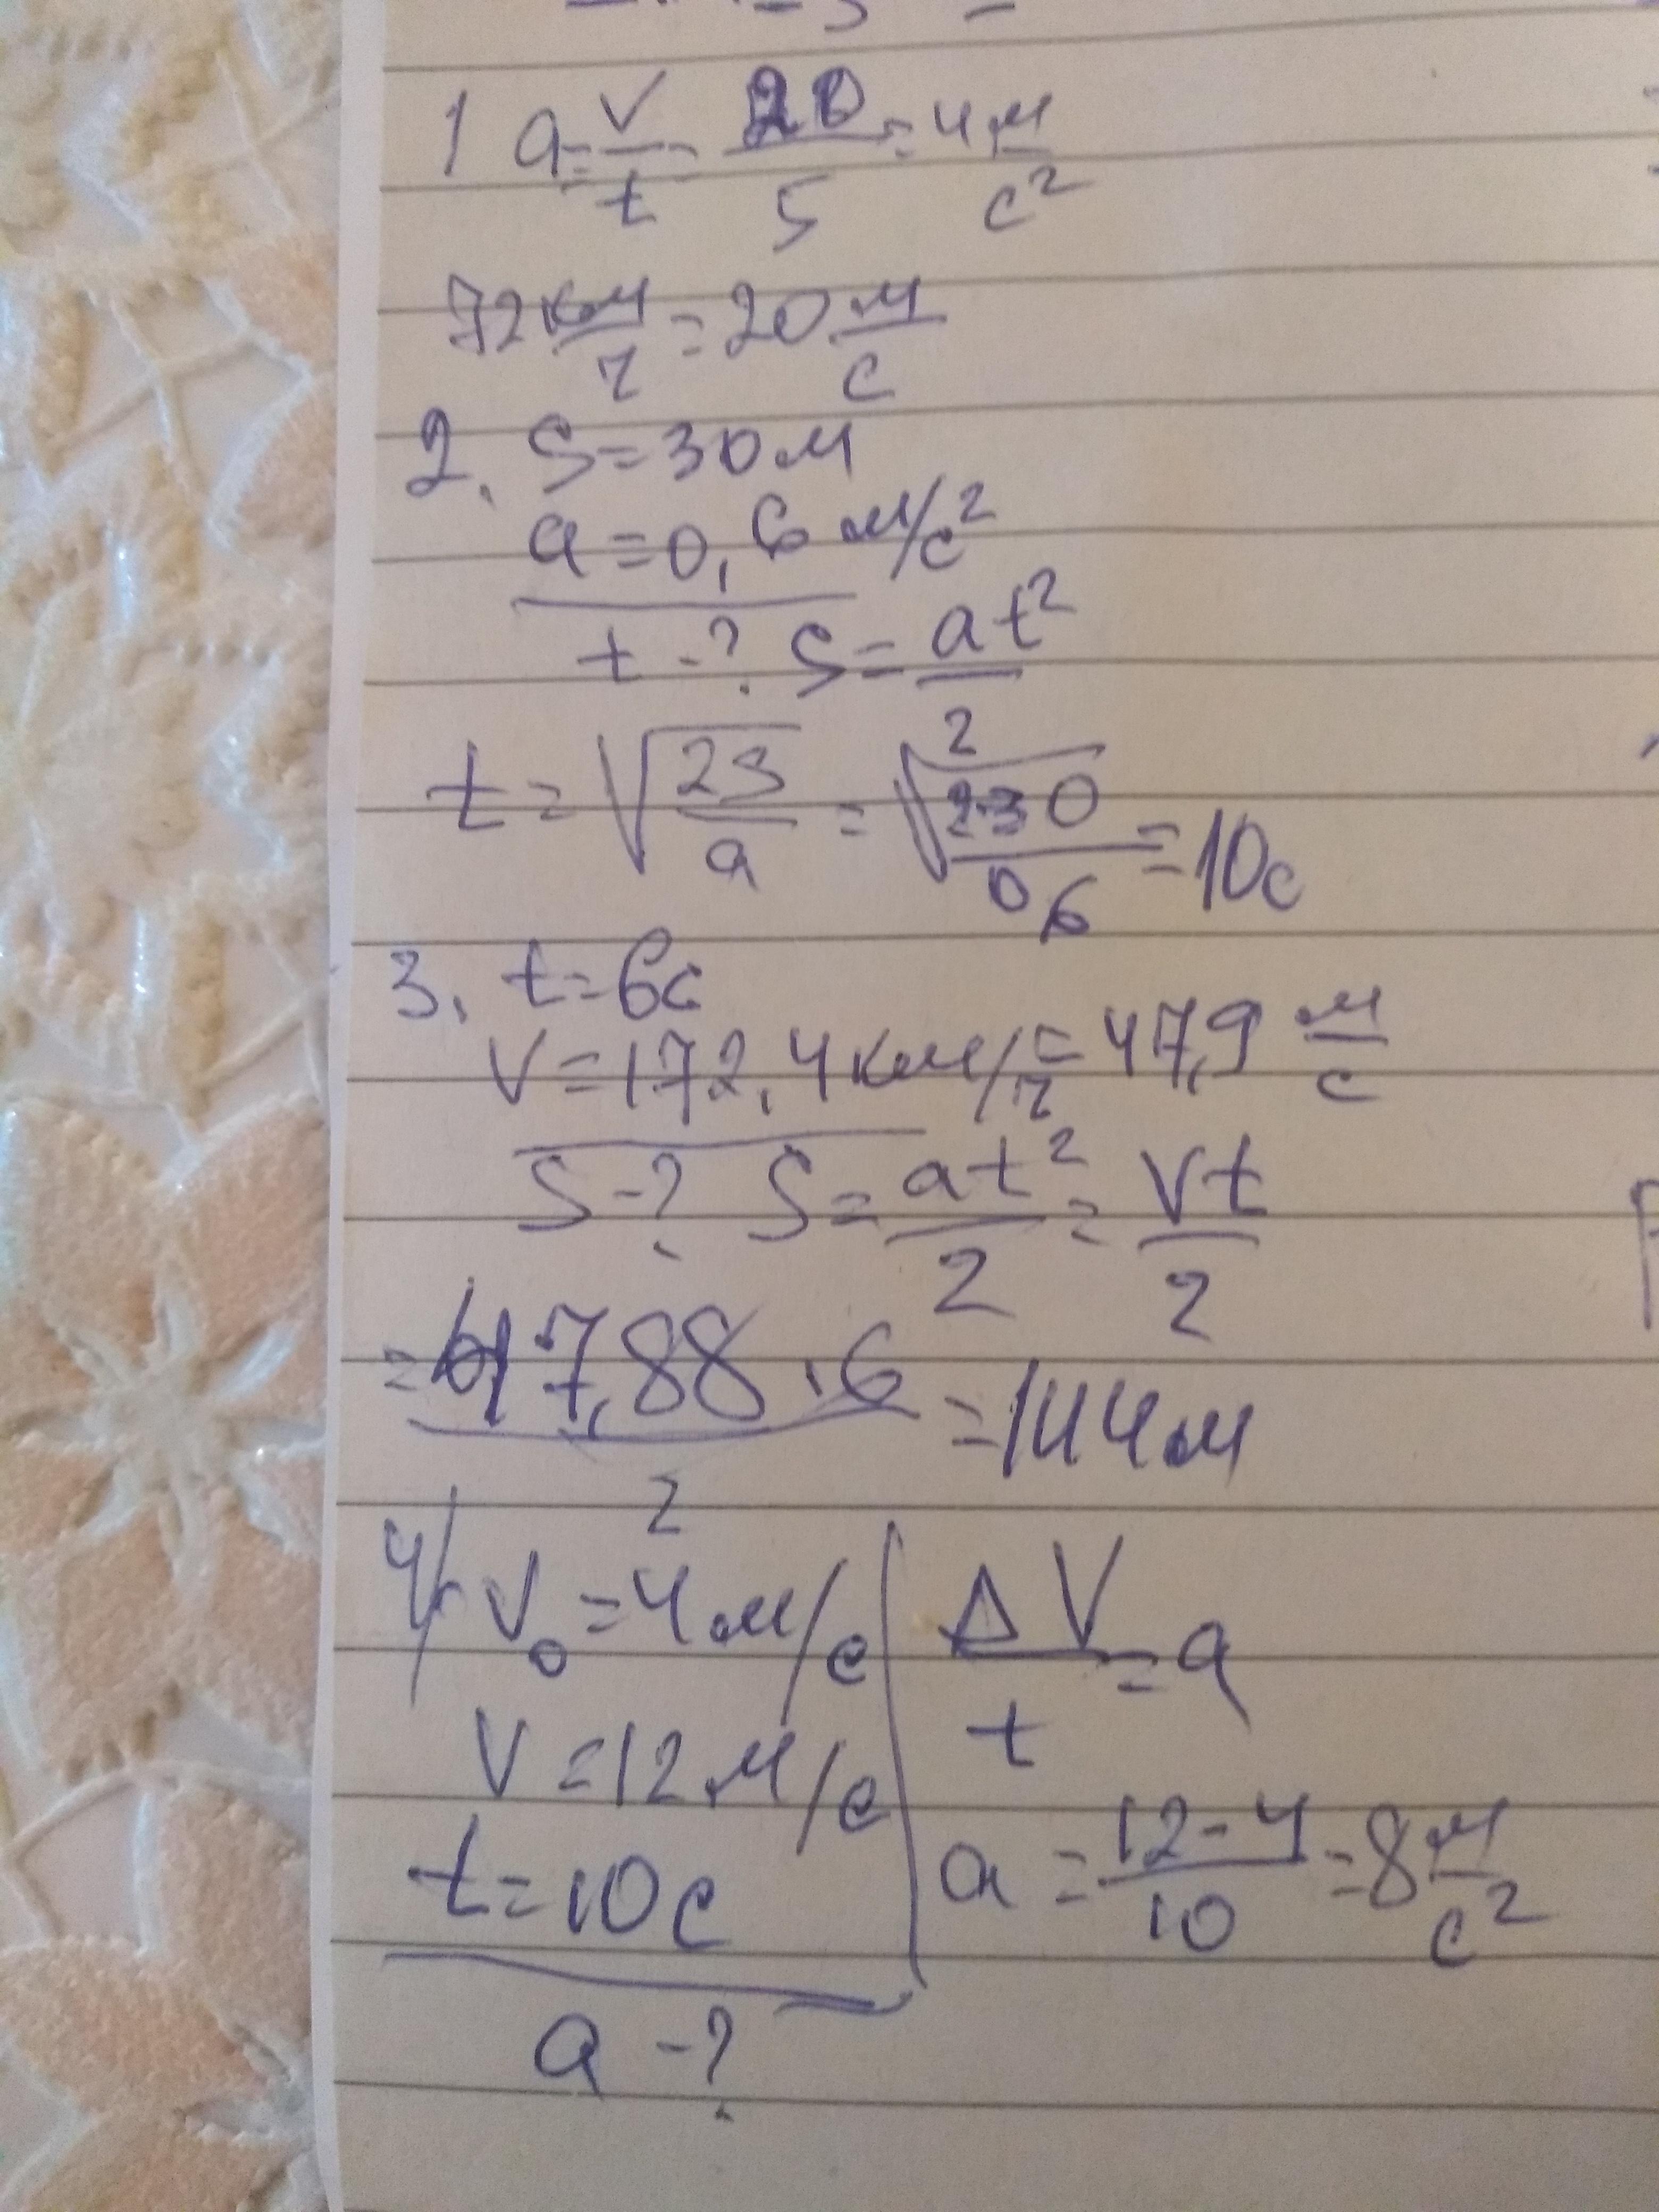 1 a = v/t = 20/5 = 4 м/с²
72 км/ч = 20 м/с
2. S = 30 м
a = 0,6 м/с²
t - ? S = at²/2
t = √(2S/a) = √(2·30/0,6) = 10с
3. t = 6с
V = 172,4 км/ч = 47,9 м/с
S - ? S = at²/2 = Vt/2
= 47,88 · 6/2 = 144 м
4 V₀ = 4 м/с ΔV/t = a
V = 12 м/с
t = 10 с a = 12-4/10 = 8 м/с²
a - ?